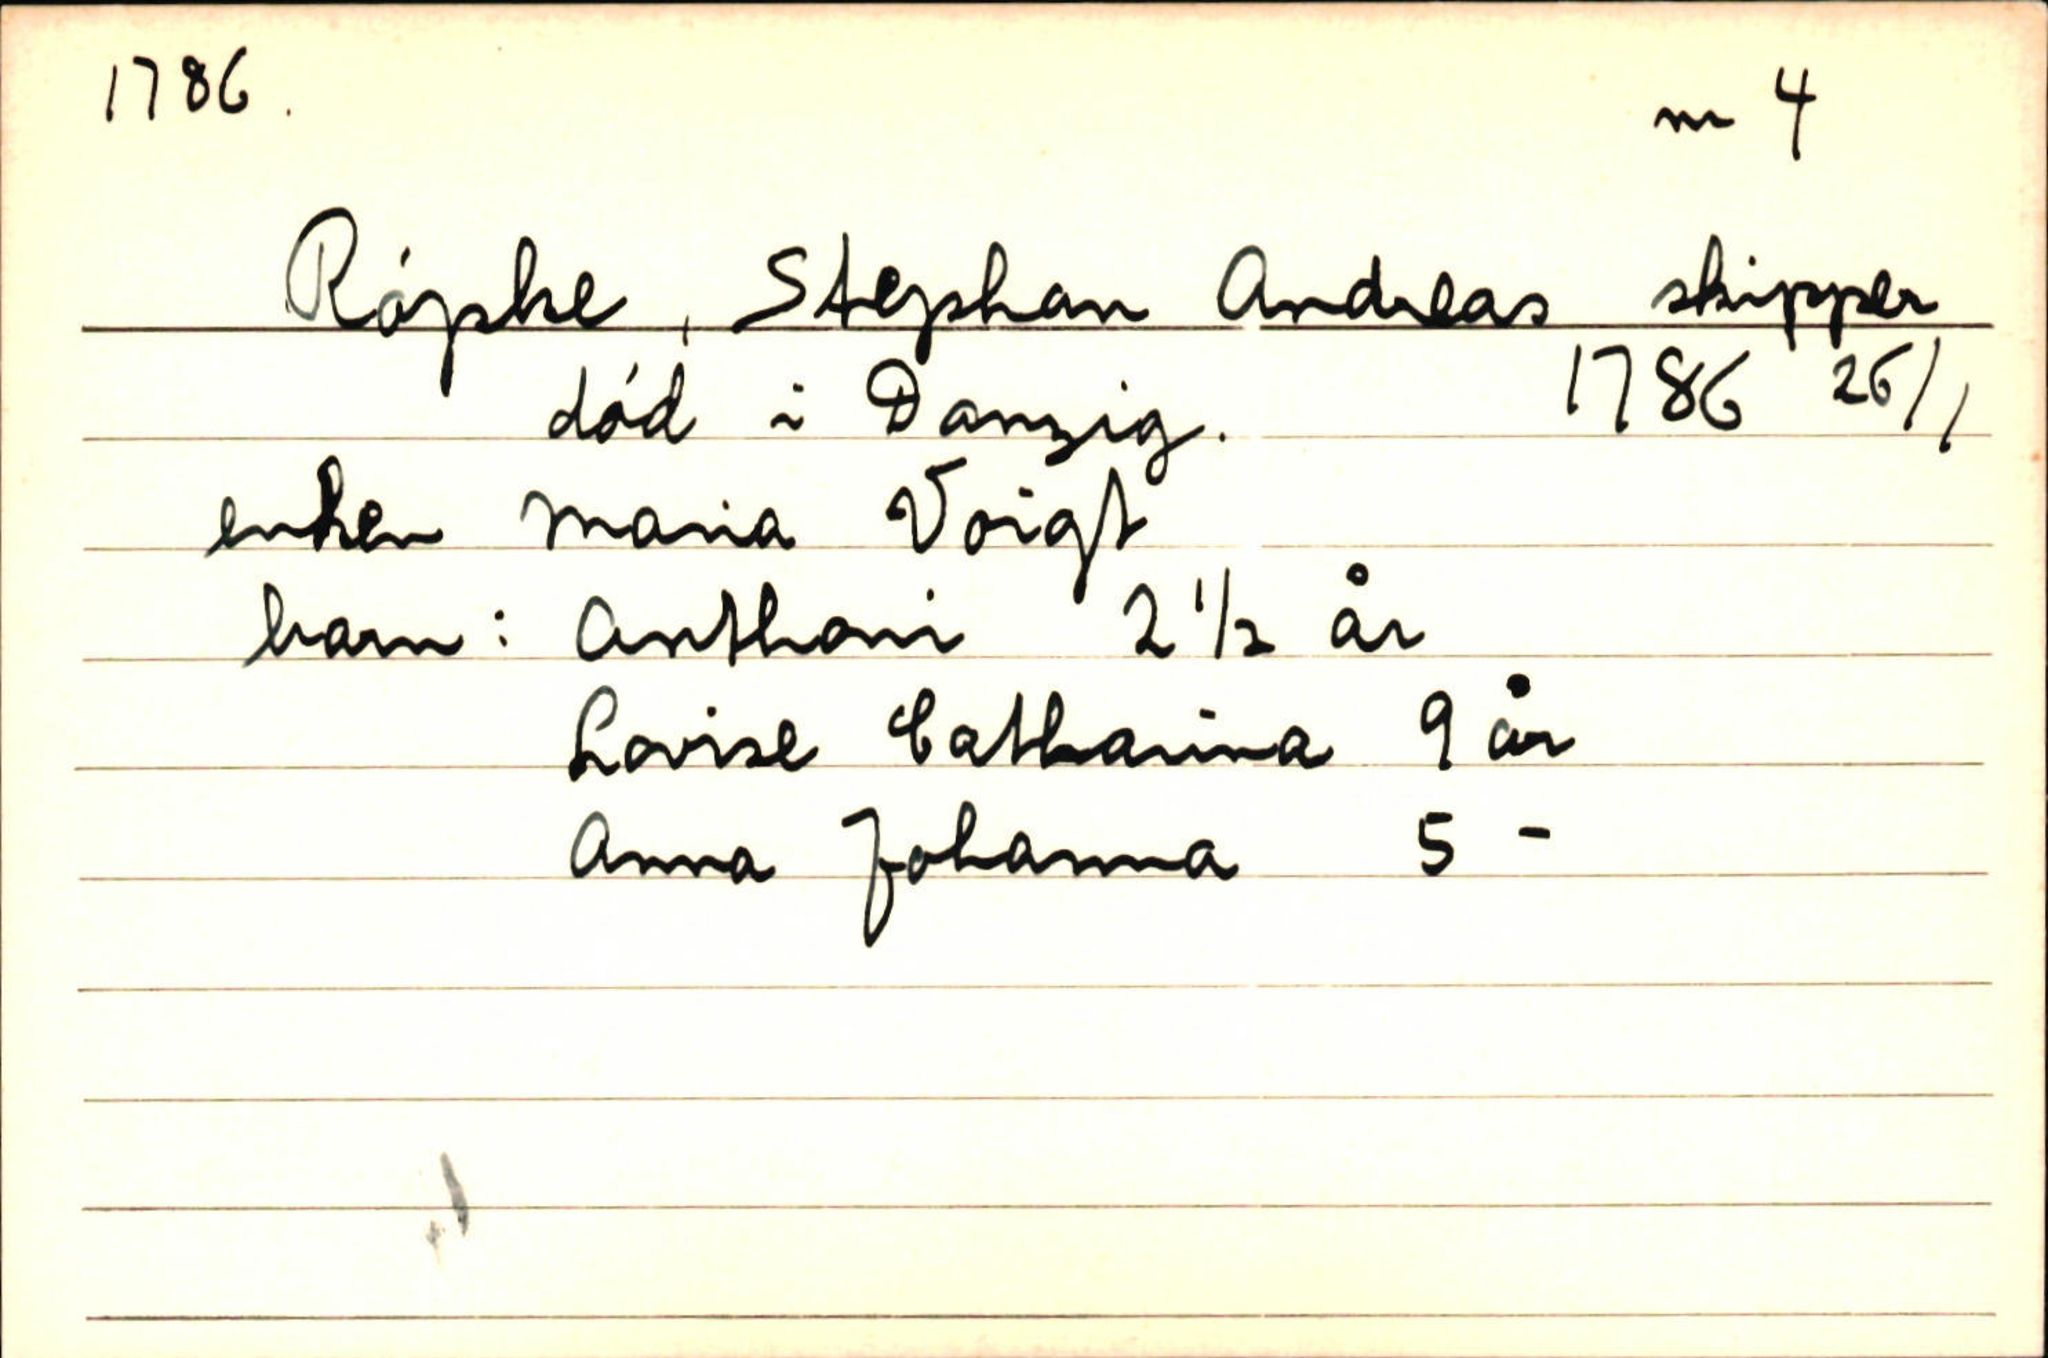 1786. nr 4
Röpke, Stephan Andreas skipper
död i Danzig. 1786 26/1
enken Maria Voigt
barn: Anthoni 2 1/2 år
Lovise Catharina 9 år
Anna Johanna 5 -